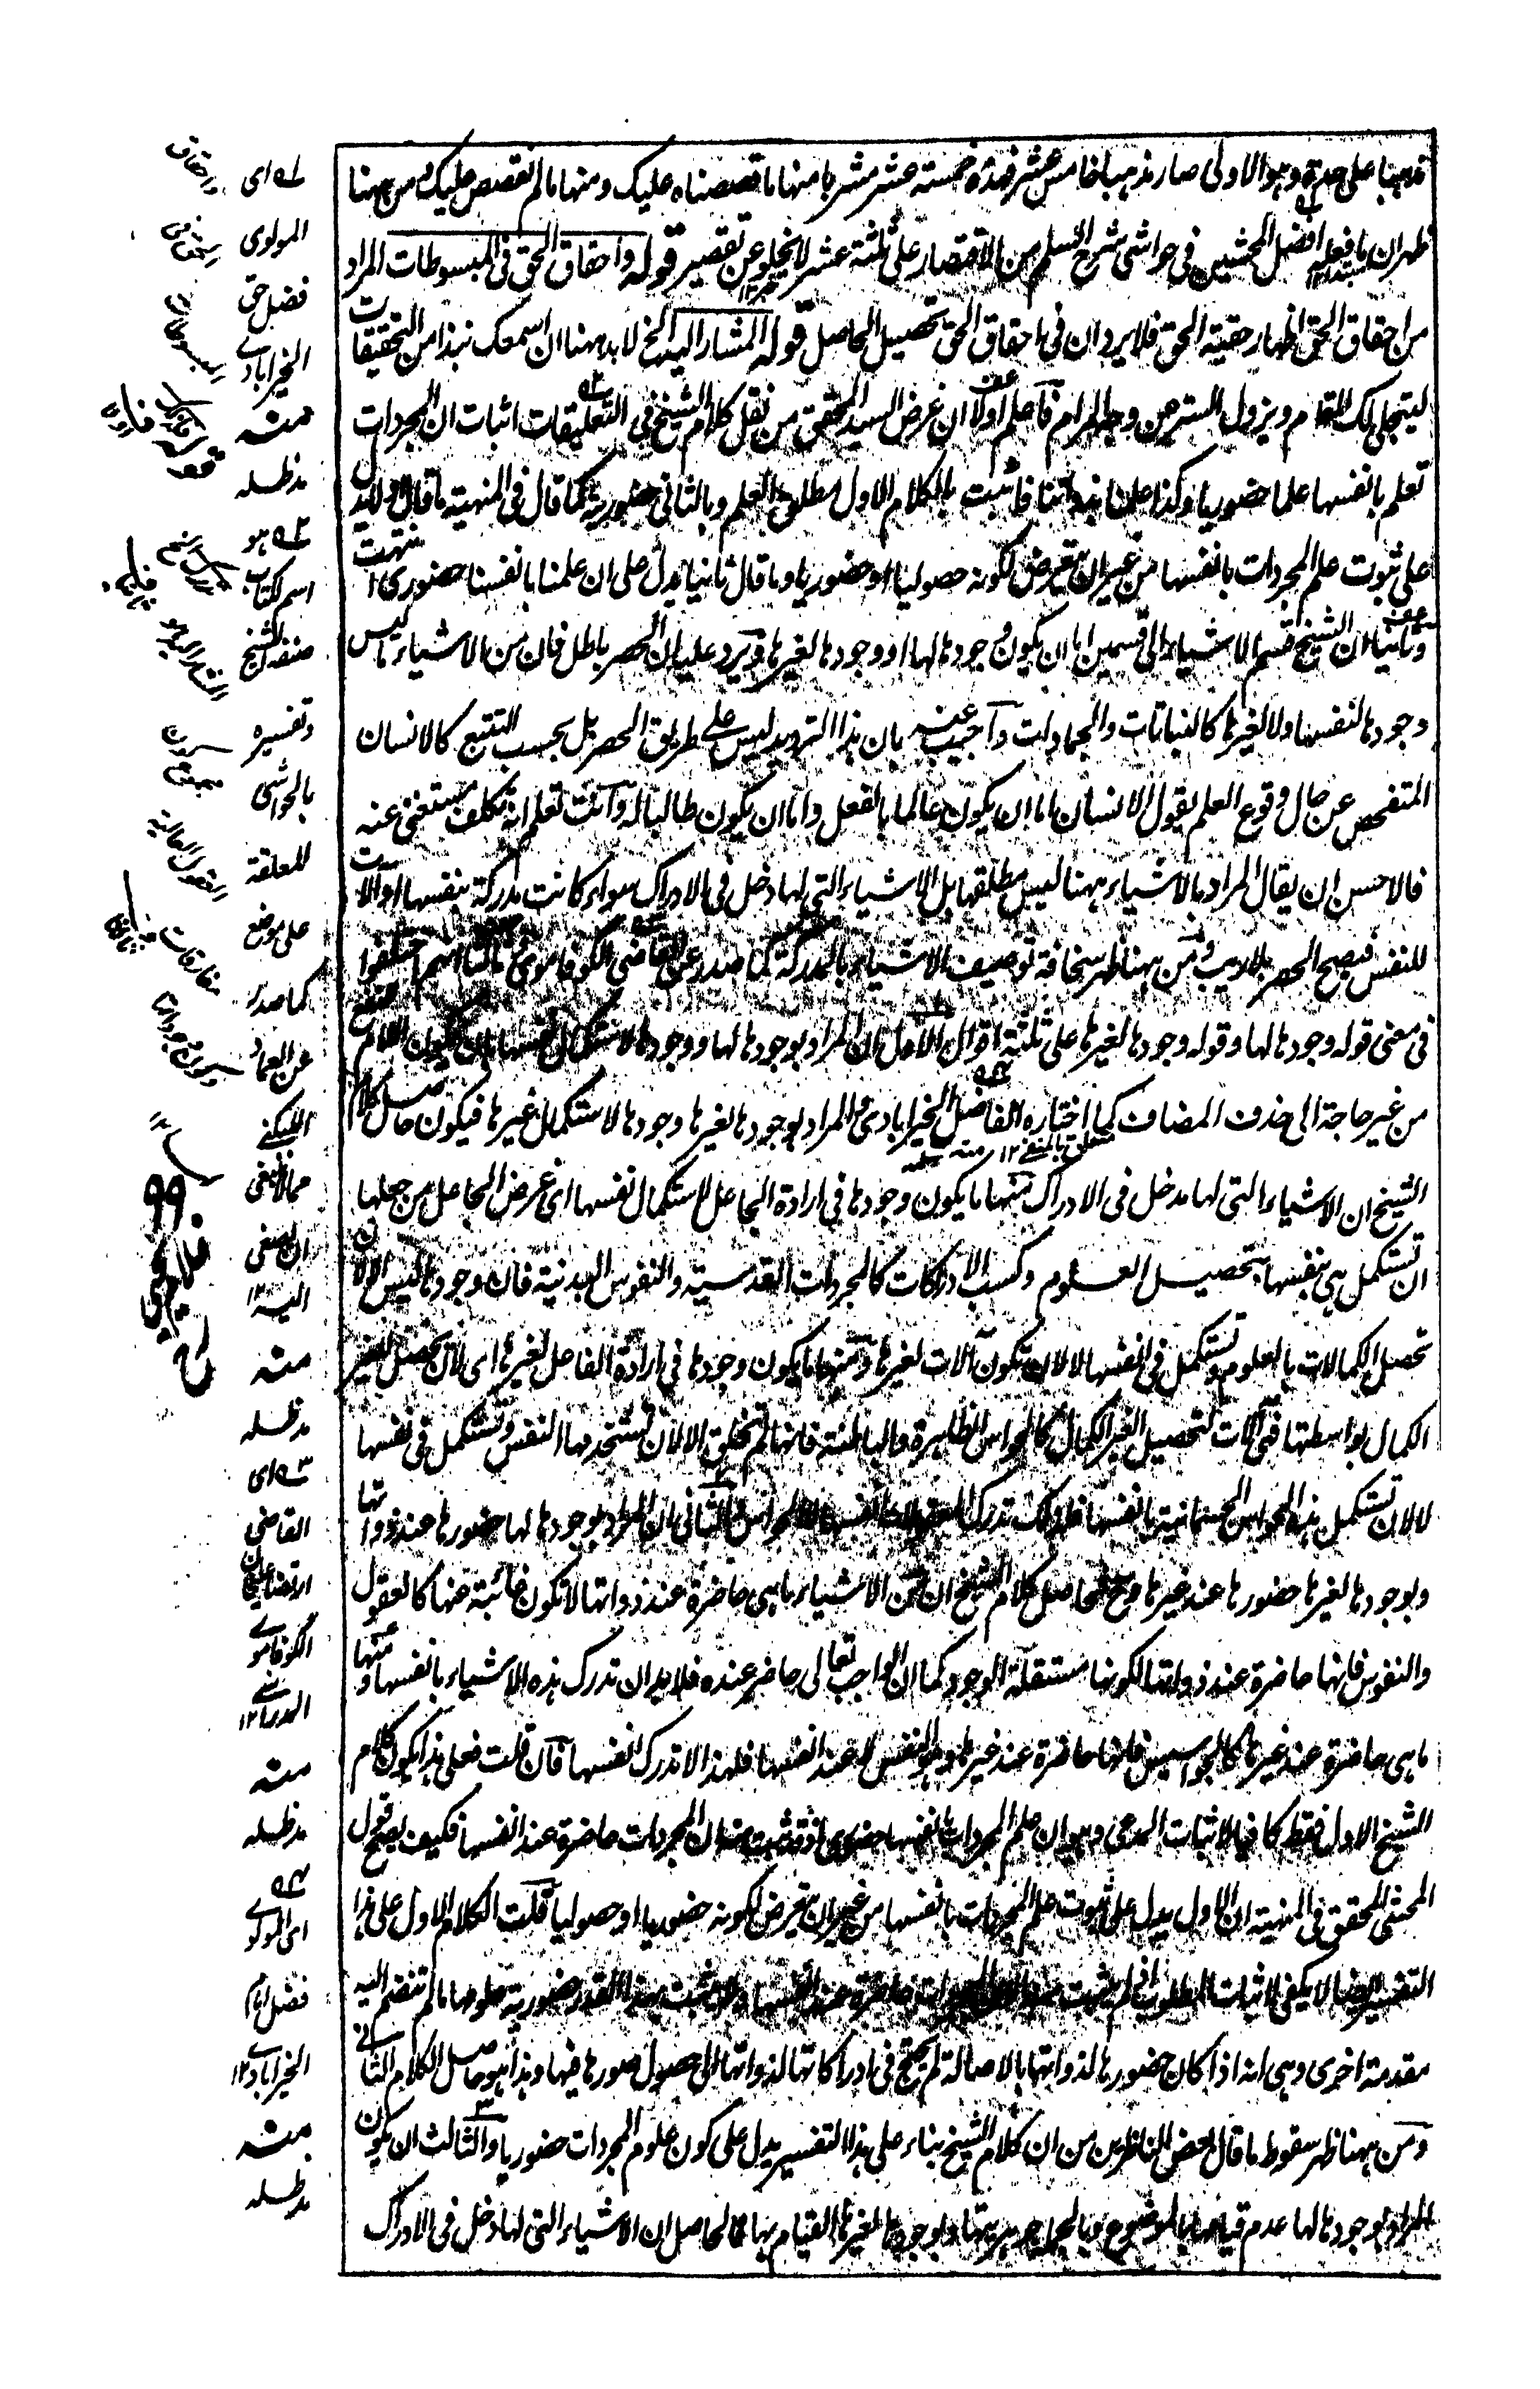 مذهبا على حدة وهو الاولى صار مذهبا خامس عشر فهذه خمسة عشر مشربا منها ما قصصناه عليك ومنها ما لم نقصص عليك ومن ههنا
ظهر ان ما فعله افضل المحشين فى حواشى شرح السلم من الاقتصار على ثلثة عشر لا يخلو عن تقصير قوله واحقاق الحق فى المبسوطات المراد
من احقاق الحق اظهار حقية الحق فلا يرد ان فى احقاق الحق تحصيل الحاصل قوله المشار اليه الخ لا بد ههنا ان اسمعك نبذا من التحقيقات
ليتجلى لك المقام ويزول الستر عن وجه المرام فاعلم اولا ان غرض السيد المحقق من نقل كلام الشيخ فى التعليقات اثبات ان المجردات
تعلم بانفسها علما حضوريا وكذا علمنا بذواتنا فاثبت بالكلام الاول مطلق العلم وبالثانى حضوريته كما قال فى المنهية ما قال اولا يدل
على ثبوت علم المجردات بانفسها من غير ان يتعرض لكونه حصوليا او حضوريا وما قال ثانيا يدل على ان علمنا بانفسنا حضورى انتهت
وثانيا ان الشيخ قسم الاشياء الى قسمين اما ان يكون وجودها لها او وجودها لغيرها ويرد عليه ان الحصر باطل فان من الاشياء ما ليس
وجودها لنفسها ولا لغيرها كالنباتات والجمادات واجيب عنه بان هذا الترديد ليس على طريق الحصر بل بحسب التتبع كالانسان
المتفحص عن حال وقوع العلم يقول الانسان اما ان يكون عالما بالفعل واما ان يكون طالبا له وانت تعلم انه تكلف مستغنى عنه
فالاحسن ان يقال المراد بالاشياء ههنا ليس مطلقها بل الاشياء التى لها دخل فى الادراك سواء كانت مدركة بنفسها او آلات
للنفس فيصح الحصر بلا ريب ومن ههنا ظهر سخافة توصيف الاشياء بالمدركة كما صدر عن القاضى الكوفاموى وثالثا انهم اختلفوا
فى معنى قوله وجودها لها وقوله وجودها لغيرها على ثلثة اقوال الاول ان المراد بوجودها لها وجودها لاستكمال نفسها بان يكون اللام للنفع
من غير حاجة الى حذف المضاف كما اختاره الفاضل الخيرابادى والمراد بوجودها لغيرها وجودها لاستكمال غيرها فيكون حاصل كلام
الشيخ ان الاشياء التى لها مدخل فى الادراك منها ما يكون وجودها فى ارادة الجاعل لاستكمال نفسها اى غرض الجاعل من جعلها
ان تستكمل هى بنفسها بتحصيل العلوم وكسب الادراكات كالمجردات القدسية والنفوس البدنية فان وجودها ليس الا لان
تحصل الكمالات بالعلوم وتستكمل فى نفسها لا لان تكون آلات لغيرها ومنها ما يكون وجودها فى ارادة الفاعل لغيرها اى لان يحصل للغير
الكمال بواسطتها فهى آلات لتحصيل الغير الكمال كالحواس الظاهرة والباطنة فانها لم تخلق الا لان تستخدمها النفس وتستكمل فى نفسها
لا لان تستكمل هذه الحواس الجسمانية بانفسها فلذلك تدرك المجردات انفسها لا الحواس والثانى ان المراد بوجودها لها حضورها عند ذواتها
وبوجودها لغيرها حضورها عند غيرها وح فحاصل كلام الشيخ ان من الاشياء ما هى حاضرة عند ذواتها لا تكون غائبة عنها كالعقول
والنفوس فانها حاضرة عند ذواتها لكونها مستقلة الوجود كما ان الواجب تعالى حاضر عنده فلا بد ان تدرك هذه الاشياء بانفسها ومنها
ما هى حاضرة عند غيرها كالحواس فانها حاضرة عند غيرها وهو النفس لا عند انفسها فلهذا لا تدرك انفسها فان قلت فعلى هذا يكون كلام
الشيخ الاول فقط كافيا لاثبات المدعى وهو ان علم المجردات بانفسها حضورى اذ قد ثبت منه ان المجردات حاضرة عند انفسها فكيف يصح قول
المحشى المحقق فى المنهية ان الاول يدل على ثبوت علم المجردات بانفسها من غير ان يتعرض لكونه حضوريا او حصوليا قلت الكلام الاول على هذا
التفسير ايضا لا يكفى لاثبات المطلوب اذ لم يثبت منه الا ان المجردات حاضرة عند انفسها ولا يثبت بهذا القدر حضورية علومها ما لم تنضم اليه
مقدمة اخرى وهى انه اذا كان حضورها لذواتها بالاصالة لم يحتج فى ادراكاتها لذواتها الى حصول صورها فيها وهذا هو حاصل الكلام الثانى
ومن ههنا ظهر سقوط ما قال بعض الناظرين من ان كلام الشيخ بناء على هذا التفسير يدل على كون علوم المجردات حضوريا والثالث ان يكون
المراد بوجودها لها عدم قيامها بالموضوع وبالجملة جوهريتها وبوجودها لغيرها القيام بها فالحاصل ان الاشياء التى لها دخل فى الادراك
له اى
المولوى
فضل حق
الخيرابادى
منه
مد ظله
له هو
اسم كتاب
صنفه الشيخ
وتفسيره
بالحواشى
المعلقة
على موضع
كما صدر
عن العماد
اللبكنى
مما لا يخفى
ان يصغى
اليه ١٢
منه
مد ظله
له اى
القاضى
ارتضا عليخان
الكوفاموى
المدراسى ١٢
منه
مد ظله
له
اى المولوى
فضل امام
الخيرابادى ١٢
منه
مد ظله